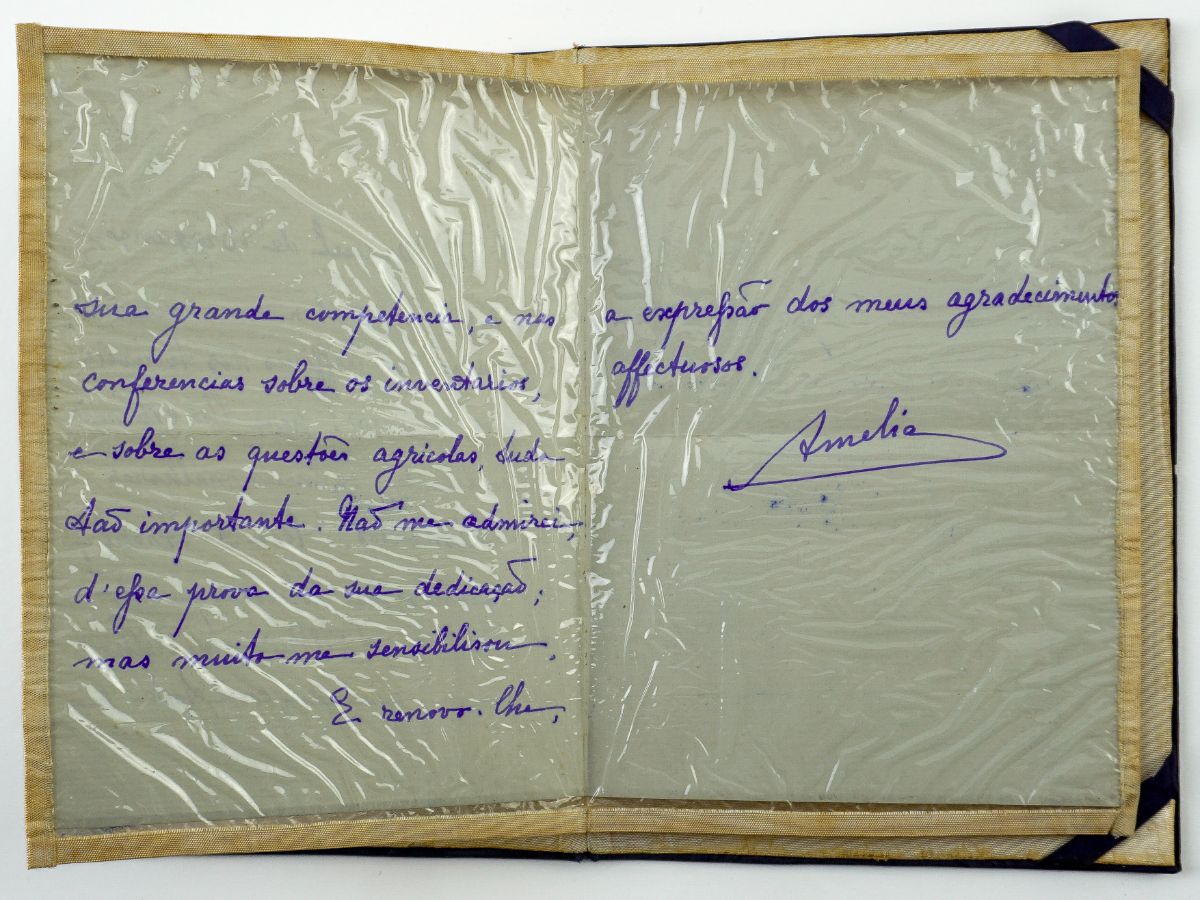 sua grande competencia, e nas
conferencias sobre os inventarios,
e sobre as questões agricolas, tudo
tão importante. Não me admirei,
d'essa prova da sua dedicação;
mas muito me sensibilisou.
E renovo-lhe,
a expressão dos meus agradecimentos
affectuosos.
Amelia